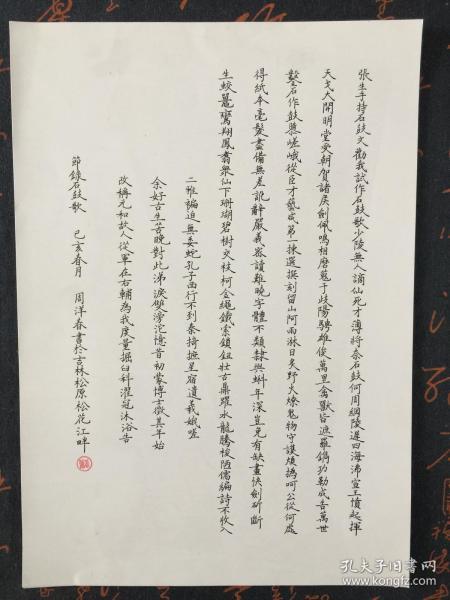 張生手持石鼓文勸我試作石鼓歌少陵無人謫仙死才薄將奈石鼓何周綱陵遲四海沸宣王憤起揮
天戈大開明堂受朝賀諸侯劍佩鳴相磨蒐于岐陽騁雄俊萬里禽獸皆遮羅鐫功勒成告萬世
鑿石作鼓隳嵯峨從臣才藝咸第一揀選撰刻留山阿雨淋日炙野火燎鬼物守護煩撝呵公從何處
得紙本毫髮盡備無差訛辭嚴義密讀難曉字體不類隸與蝌年深豈免有缺畫快劍斫斷
生蛟鼉鸞翔鳳翥眾仙下珊瑚碧樹交枝柯金繩鐵索鎖鈕壯古鼎躍水龍騰梭陋儒編詩不收入
二雅褊迫無委蛇孔子西行不到秦掎摭星宿遺羲娥嗟
余好古生苦晚對此涕淚雙滂沱憶昔初蒙博士徵其年始
改稱元和故人從軍在右輔為我度量掘臼科濯冠沐浴告
節錄石鼓歌 己亥春月 周洋春書於吉林松原松花江畔
孔夫子旧书网